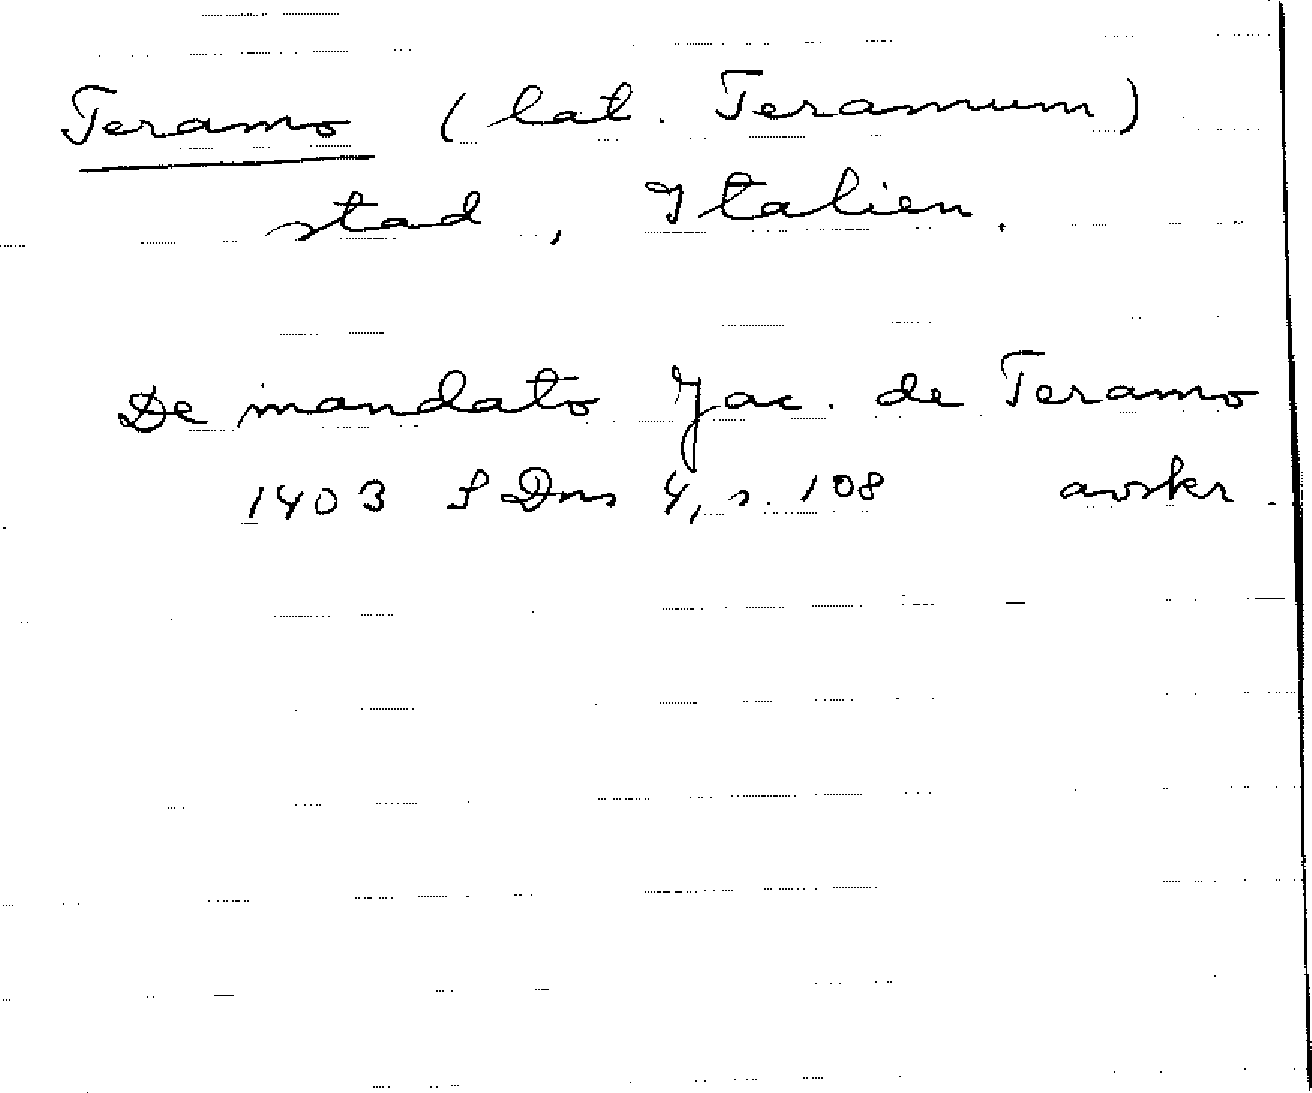 Teramo (lat. Teramum)
stad, Italien.
De mandato Jac. de Teramo
1403 SDns 4, s. 108 avskr.